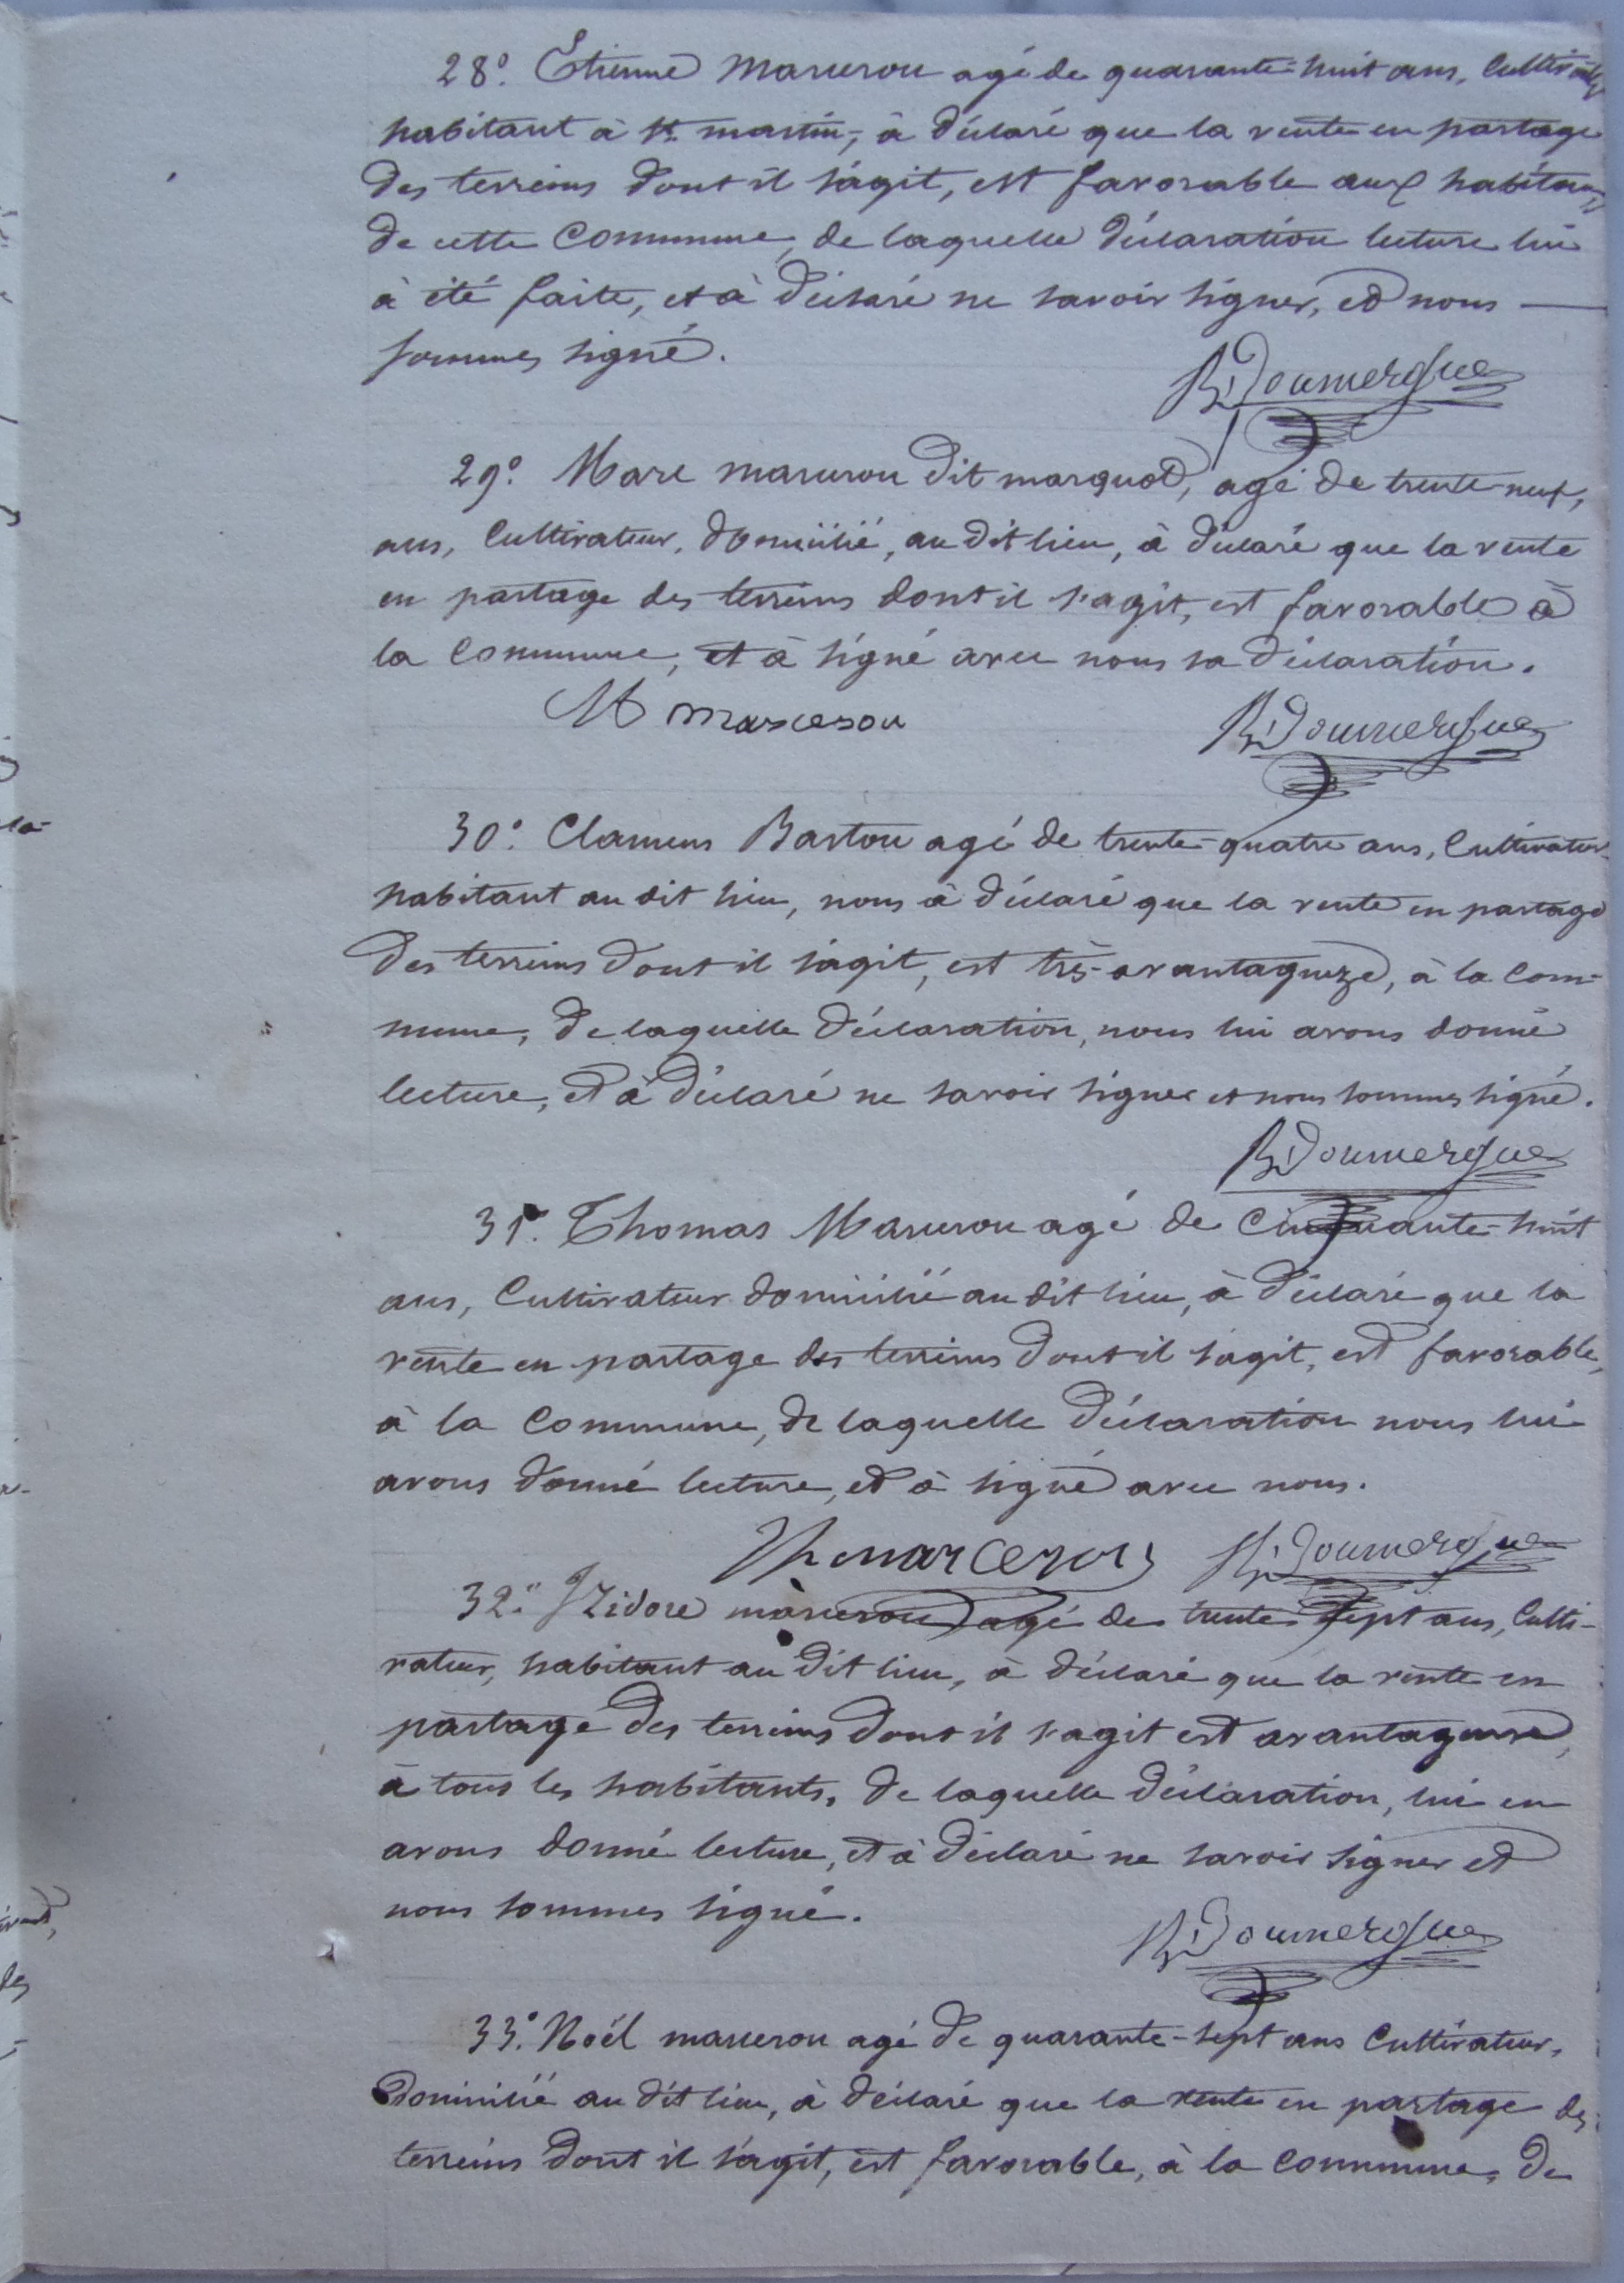 28° Etienne Marcerou agé de quarante-huit ans, Cultivateur
habitant à St. martin, à déclaré que la vente en partage
des terreins dont il s'agit, est favorable aux habitans
de cette Commune, de laquelle déclaration lecture lui
à été faite, et à déclaré ne savoir signer, et nous
sommes signé.
R Doumergue
29° Marc marcerou dit marquet, agé de trente-neuf,
ans, Cultivateur, domicilié, au dit lieu, à déclaré que la vente
en partage des terreins dont il s'agit, est favorable à
la Commune, et à signé avec nous sa déclaration.
M marcerou R Doumergue
30° Clamens Bartou agé de trente-quatre ans, Cultivateur
habitant au dit lieu, nous à déclaré que la vente en partage
des terreins dont il s'agit, est très-avantageuze, à la Com-
mune, de laquelle déclaration, nous lui avons donné
lecture, et à déclaré ne savoir signer et nous sommes signé.
R Doumergue
31° Thomas Marcerou agé de Cinquante-huit
ans, Cultivateur domicilié au dit lieu, à déclaré que la
vente en partage des terreins dont il s'agit, est favorable,
à la Commune, de laquelle déclaration nous lui
avons donné lecture, et à signé avec nous.
Th marcerou R Doumergue
32° Izidore marcerou agé de trente-sept ans, Culti-
vateur, habitant au dit lieu, à déclaré que la vente en
partage des terreins dont il s'agit est avantageuse,
à tous les habitants, de laquelle déclaration, lui en
avons donné lecture, et à déclaré ne savoir signer et
nous sommes signé.
R Doumergue
33° Noël marcerou agé de quarante-sept ans Cultivateur,
Domicilié au dit lieu, à déclaré que la vente en partage des
terreins dont il s'agit, est favorable, à la Commune, de